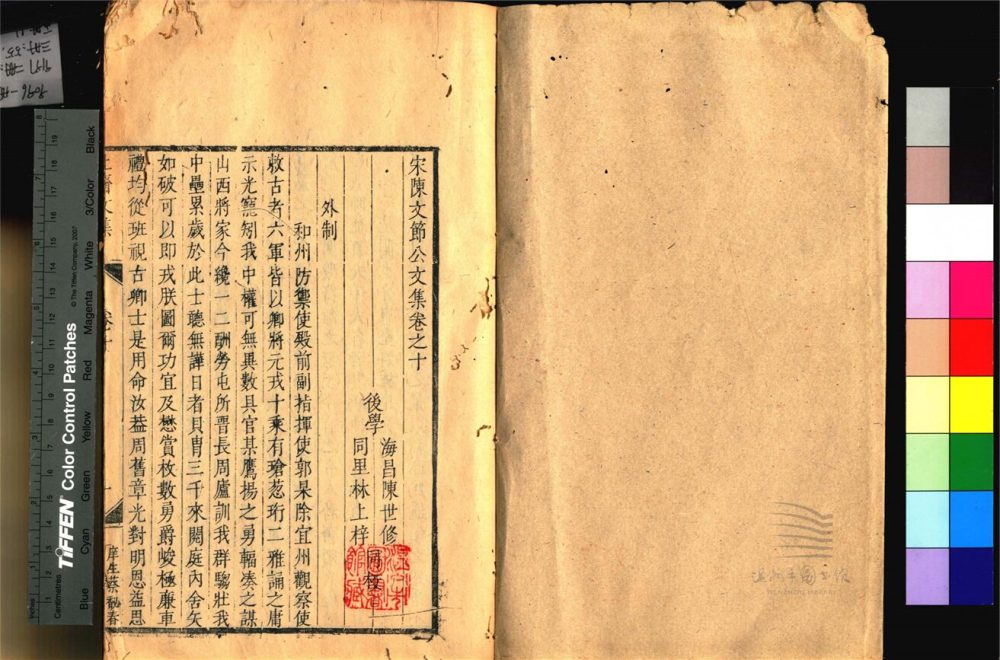 宋陳文節公文集卷之十
後學
海昌陳世修
同里林上梓
同校
外制
和州防禦使殿前副指揮使郭杲除宜州觀察使
敕古者六軍皆以卿將元戎十乘有瑲蔥珩二雅誦之庸
示光寵矧我中權可無異數具官某鷹揚之勇輻湊之謀
山西將家今纔一二酬勞屯所晋長周廬訓我群騶壯我
中壘累歲於此士聽無譁日者貝胄三千來閱庭内舍矢
如破可以即戎朕圖爾功宜及懋賞枚數勇爵峻極廉車
禮均從班視古卿士是用命汝葢周舊章光對明恩益思
止齋文集
卷十
庠生蔡秘春
溫州市圖書館
WENZHOU LIBRARY
TIFFEN Color Control Patches
© The Tiffen Company, 2007
Inches
Centimetres
Blue
Cyan
Green
Yellow
Red
Magenta
White
3/Color
Black